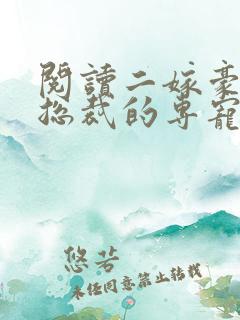 閱讀二嫁豪
總裁的專寵
悠若
未經同意禁止轉載